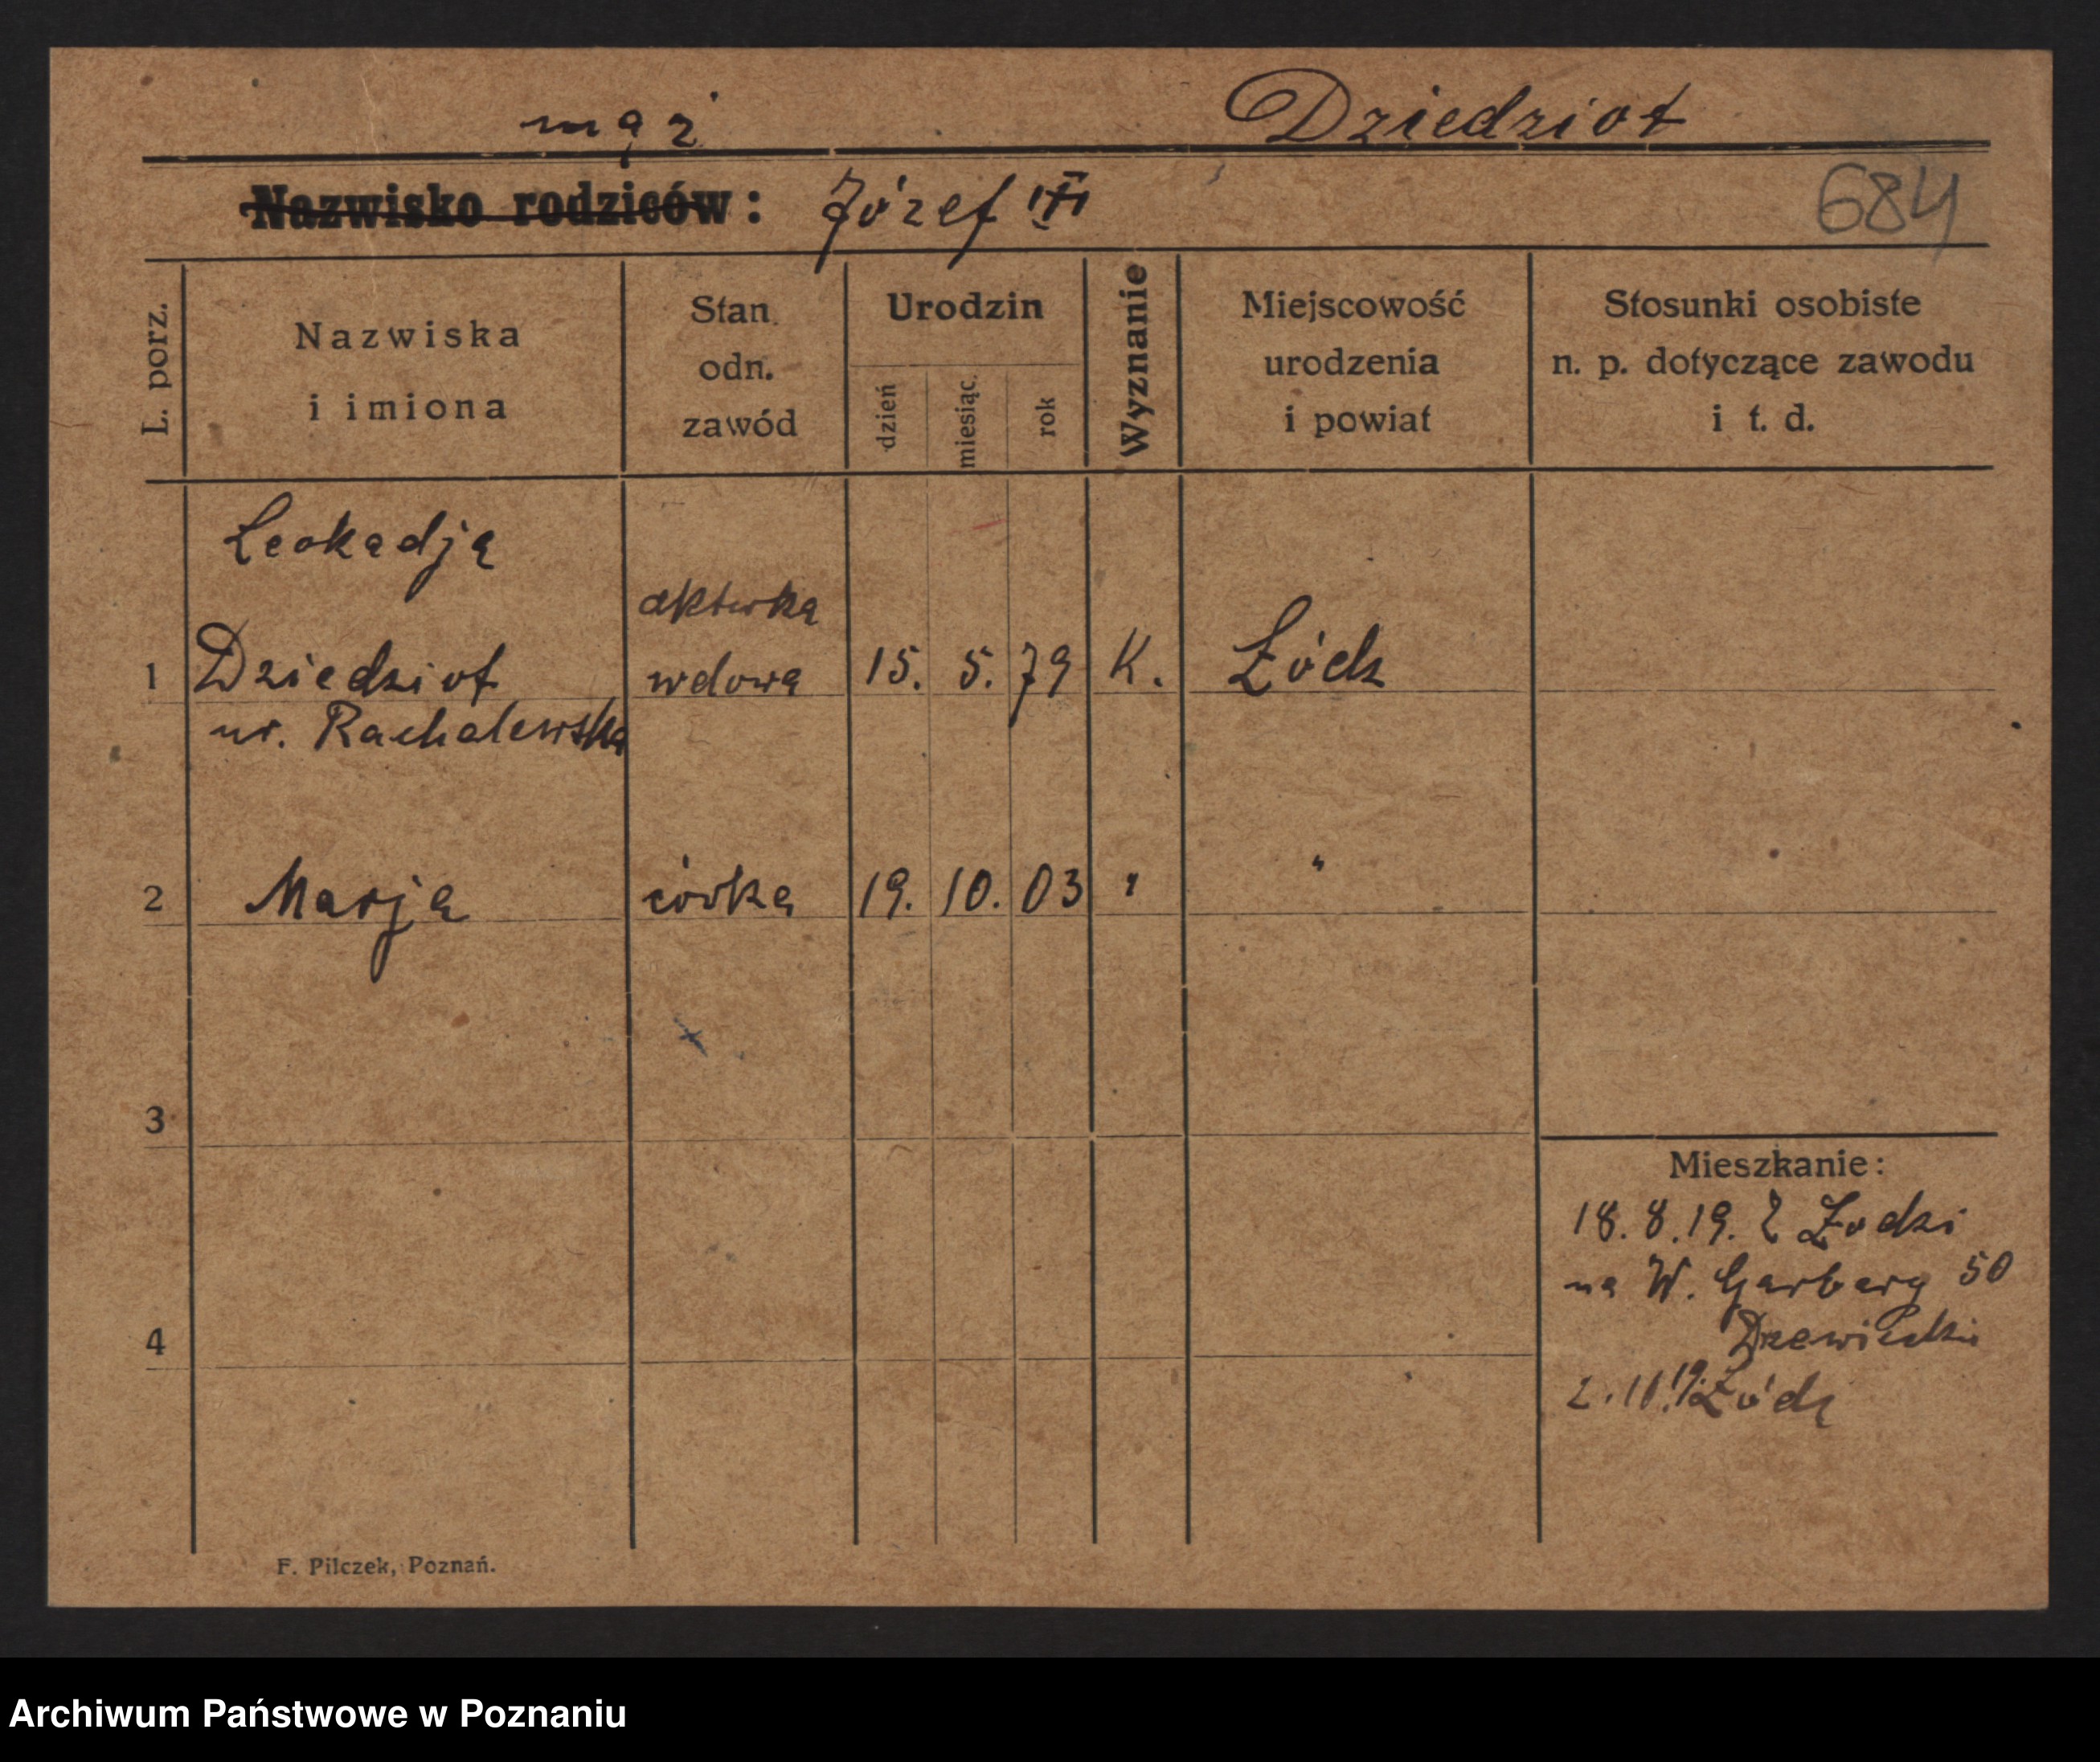 mąż Dziedziot
Nazwisko rodziców: Józef III
684
L. porz.
Nazwiska
i imiona
Stan
odn.
zawód
Urodzin
dzień
miesiąc.
rok
Wyznanie
Miejscowość
urodzenia
i powiat
Stosunki osobiste
n. p. dotyczące zawodu
i t. d.
Leokadja
1 Dziedziot wdowa 15. 5. 79 K. Łódz
ur. Rachalewska
2 Marja córka 19. 10. 03 " "
3
4
Mieszkanie:
18. 8. 19. Z Łodzi
na W. Garbary 50
2. 11. 19. Łódź
F. Pilczek, Poznań.
Archiwum Państwowe w Poznaniu